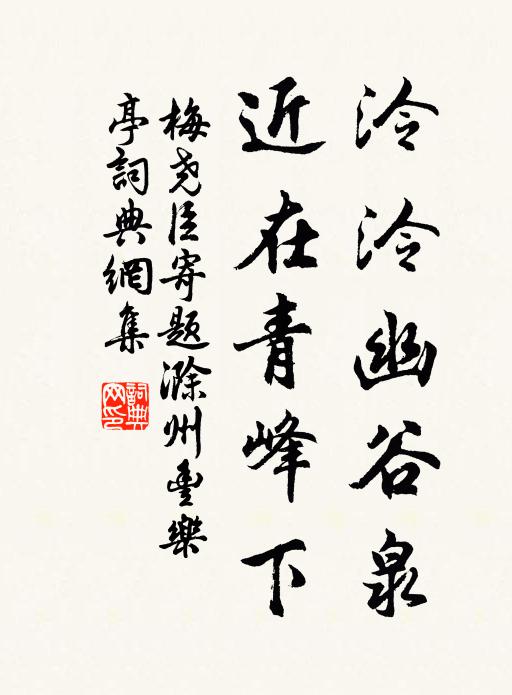 泠泠幽谷泉
近在青峰下
梅尧臣寄题滁州豐樂
亭詞典網集
詞典网印